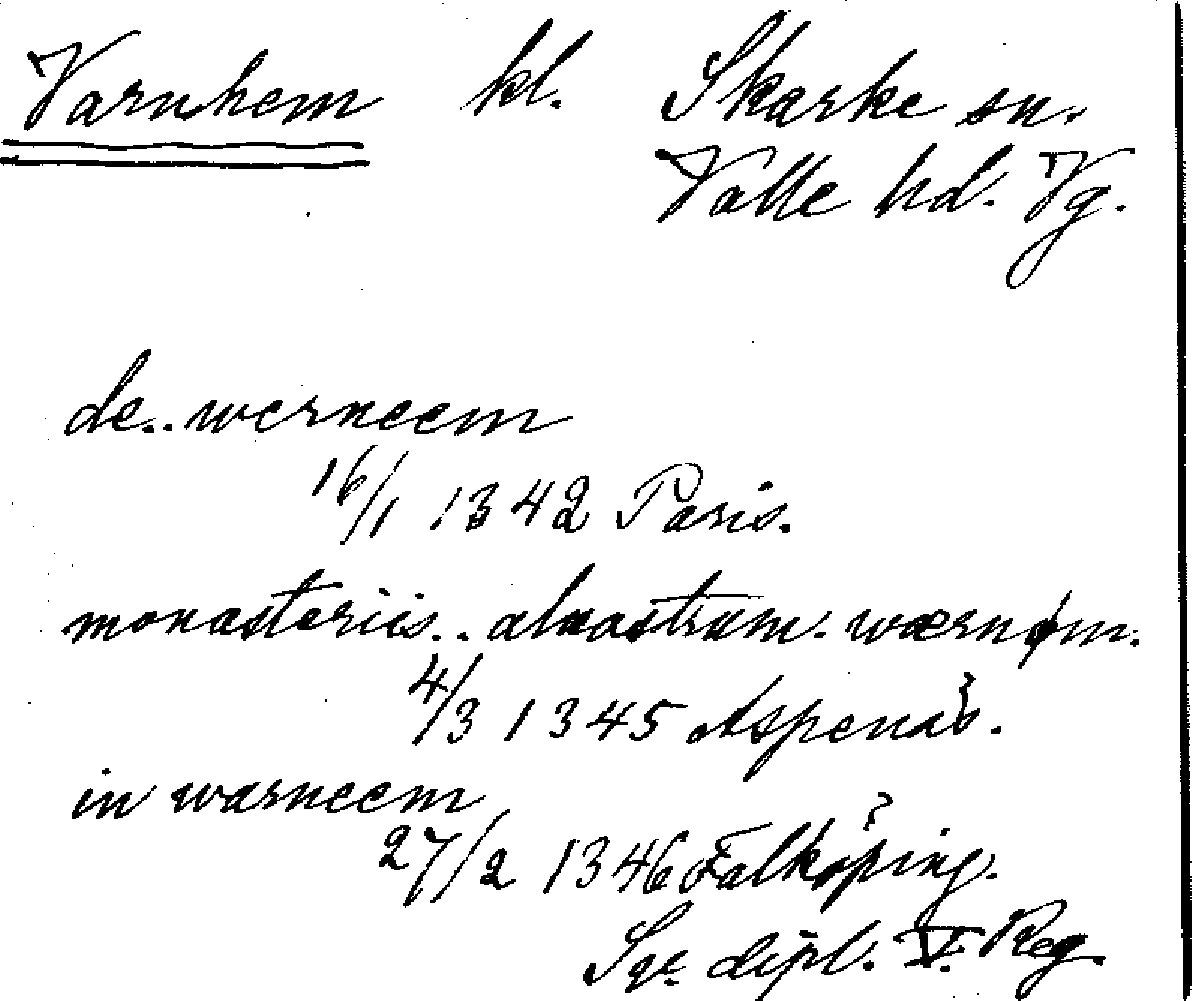 Varnhem kl. Skarke sn.
Valle hd. Vg.
de.. werneem
16/1 1342 Paris.
monasteriis.. alwastrum. wærnøm.
4/3 1345 Aspenäs.
in warneem
27/2 1346 Falköping.
Sve dipl. V. Reg.